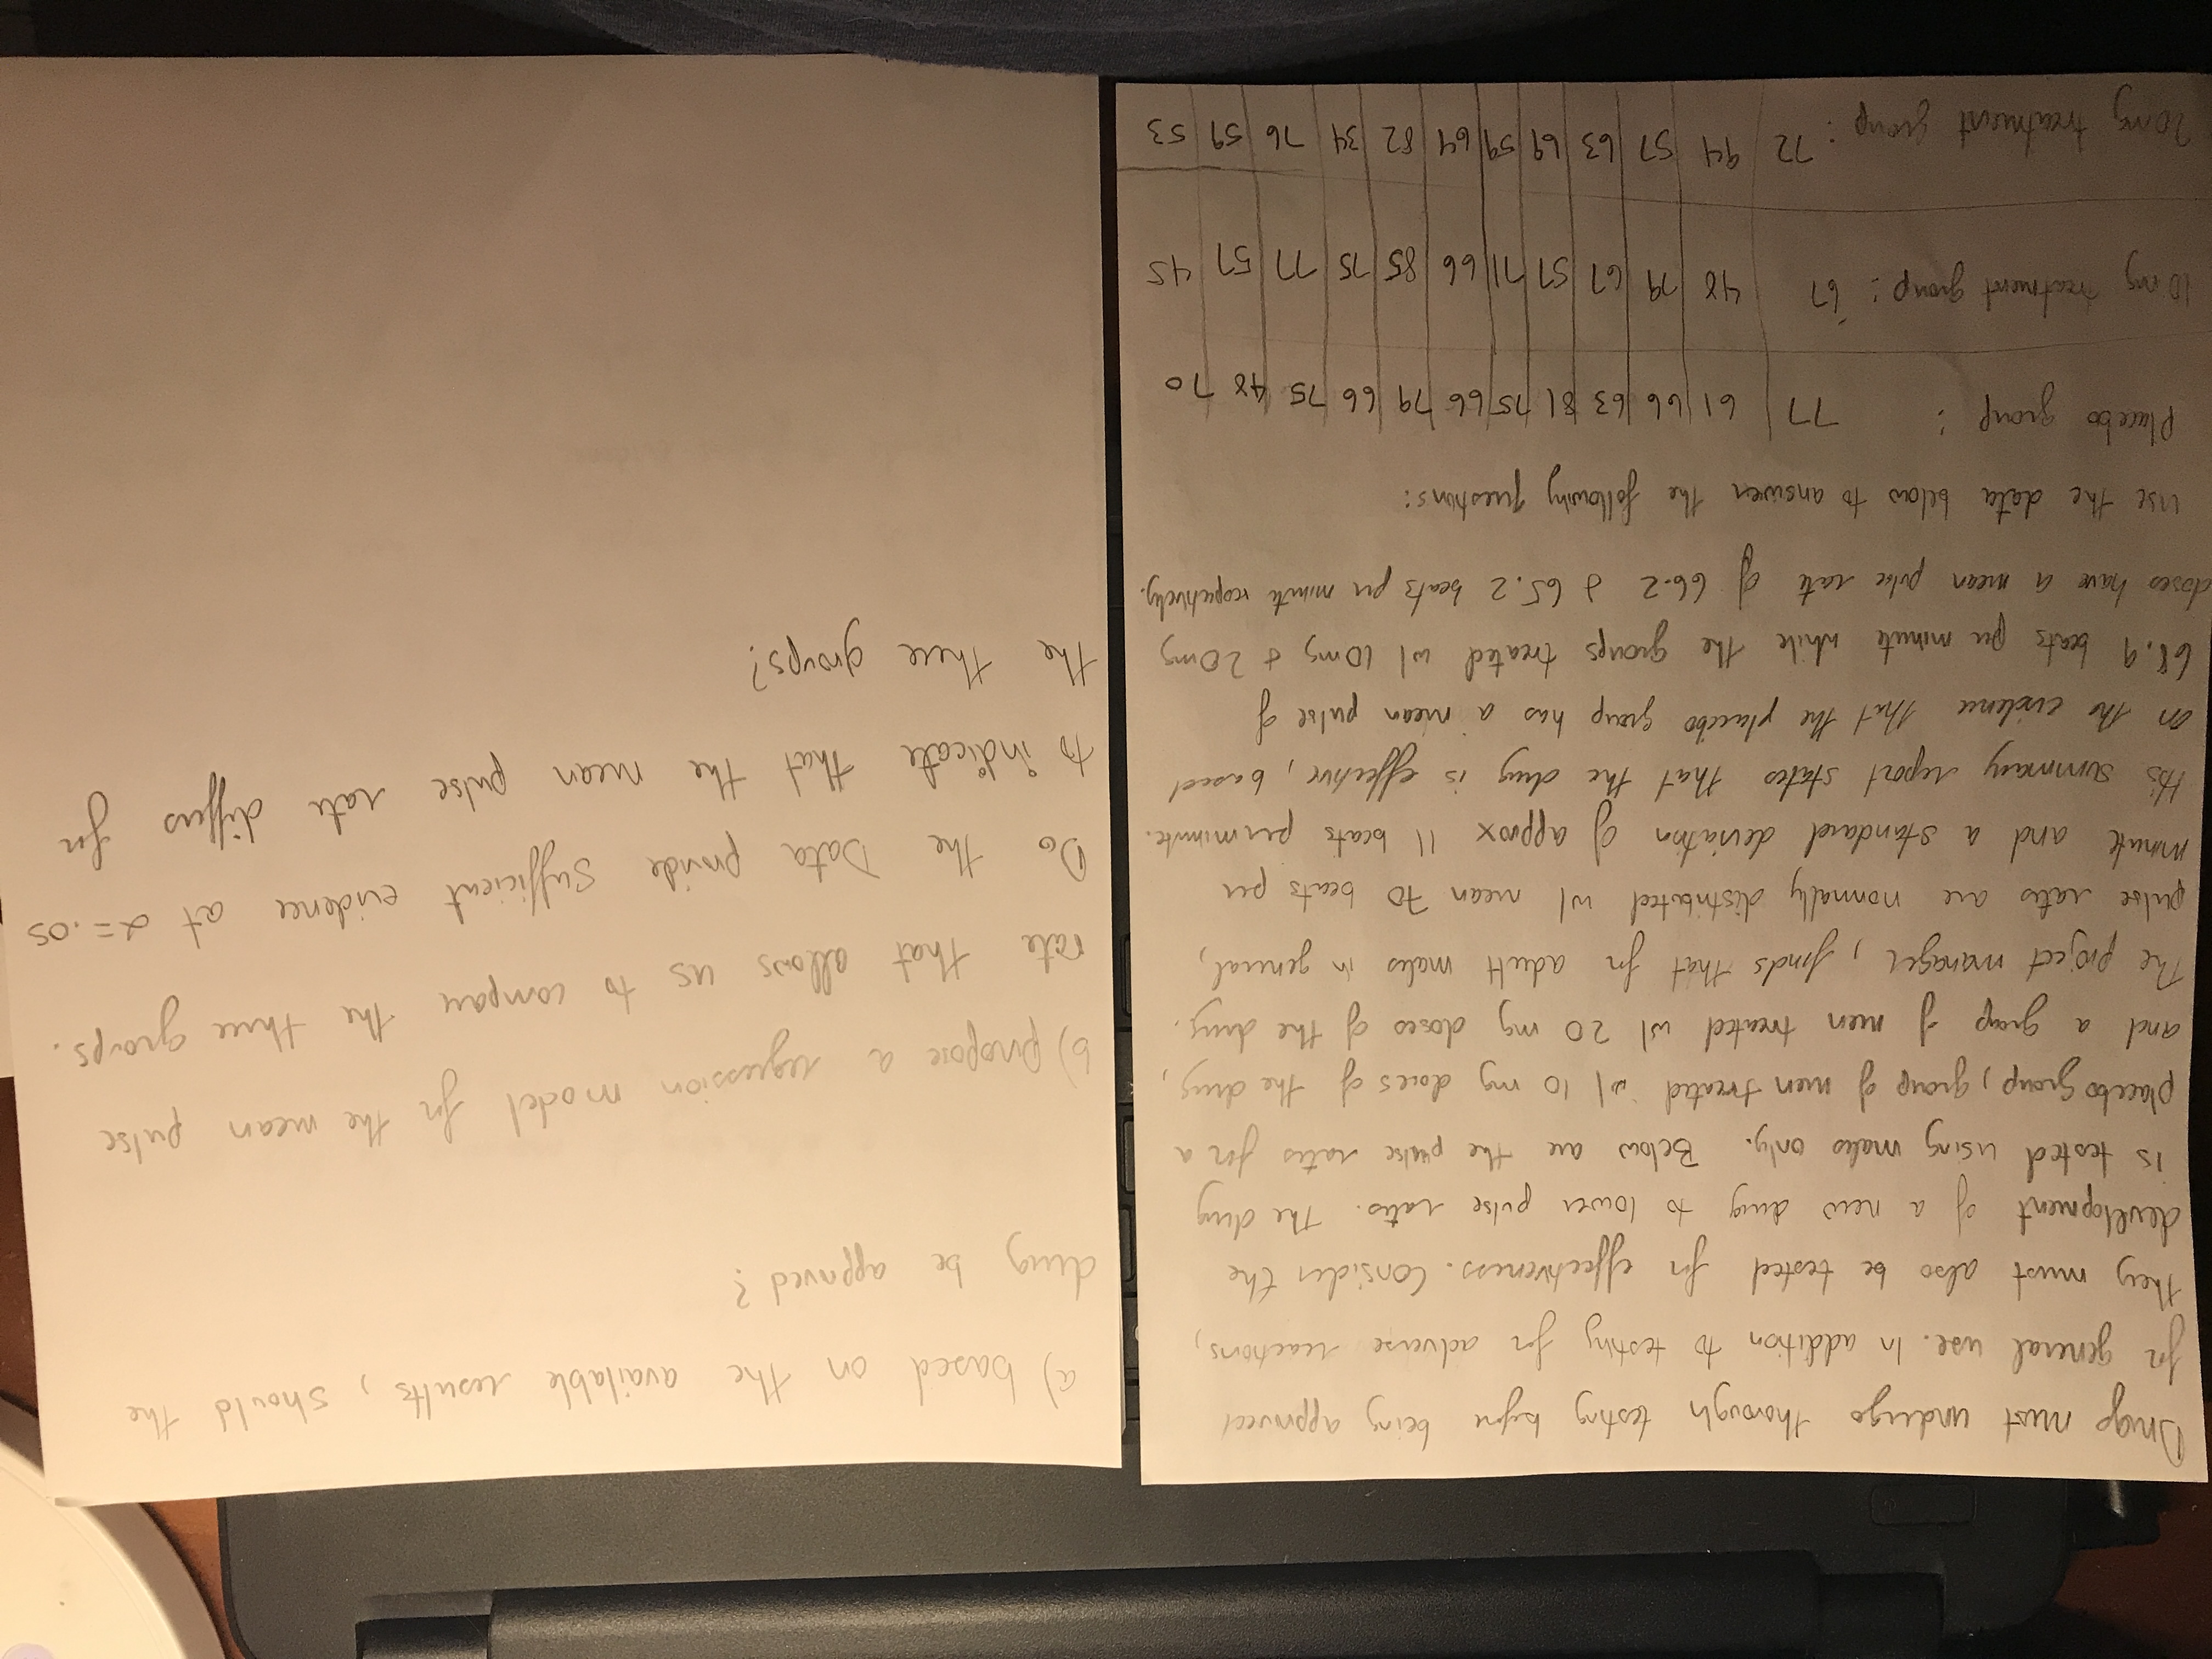 Drugs must undergo thorough testing before being approved
for general use. In addition to testing for adverse reactions,
they must also be tested for effectiveness. Consider the
development of a new drug to lower pulse rates. The drug
is tested using males only. Below are the pulse rates for a
placebo group, group of men treated w/ 10 mg doses of the drug,
and a group of men treated w/ 20 mg doses of the drug.
The project manager, finds that for adult males in general,
pulse rates are normally distributed w/ mean 70 beats per
minute and a standard deviation of approx 11 beats per minute.
His summary report states that the drug is effective, based
on the evidence that the placebo group has a mean pulse of
68.9 beats per minute while the groups treated w/ 10mg & 20mg
doses have a mean pulse rate of 66.2 & 65.2 beats per minute respectively.
use the data below to answer the following questions:
Placebo group : 77 61 66 63 81 75 66 79 66 75 48 70
10 mg treatment group : 67 48 79 67 57 71 66 85 75 77 57 45
20mg treatment group : 72 94 57 63 69 59 64 82 34 76 59 53
a) based on the available results, should the
drug be approved?
b) propose a regression model for the mean pulse
rate that allows us to compare the three groups.
Do the Data provide sufficient evidence at α=.05
to indicate that the mean pulse rate differs for
the three groups?